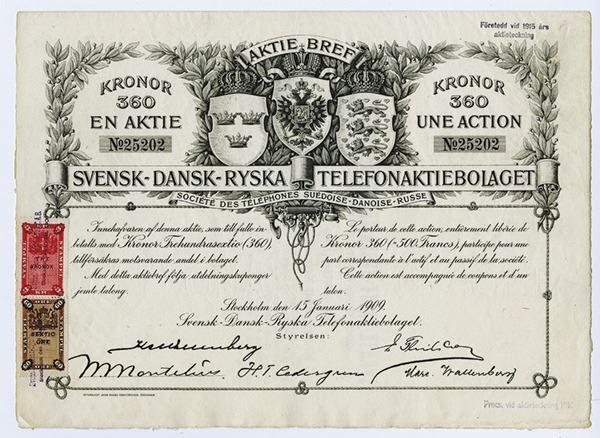 Företedd vid 1915 års
aktieteckning
AKTIE-BREF
KRONOR
360
EN AKTIE
No25202
KRONOR
360
UNE ACTION
No25202
SVENSK-DANSK-RYSKA TELEFONAKTIEBOLAGET
SOCIÉTÉ DES TÉLÉPHONES SUÉDOISE-DANOISE-RUSSE
Innehafvaren af denna aktie, som till fullo in-
betalts med Kronor Trehundrasextio (360),
tillförsäkras motsvarande andel i bolaget.
Med detta aktiebref följa utdelningskuponger
jemte talong.
Le porteur de cette action, entièrement libérée de
Kronor 360 (=500 Francs), participe pour une
part correspondante à l'actif et au passif de la société.
Cette action est accompagnée de coupons et d'un
talon.
Stockholm den 15 Januari 1909.
Svensk-Dansk-Ryska Telefonaktiebolaget.
Styrelsen:
W Montelius H. T. Cedergren Marc. Wallenberg
TRE
KRONOR
SEXTIO
ÖRE
60 60
Pres. vid aktieteckning